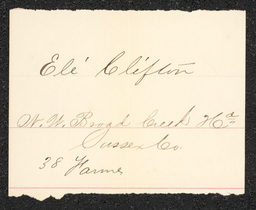 Elé Clifton
N. W. Broad Creek Hd
Sussex Co.
38 Farmer